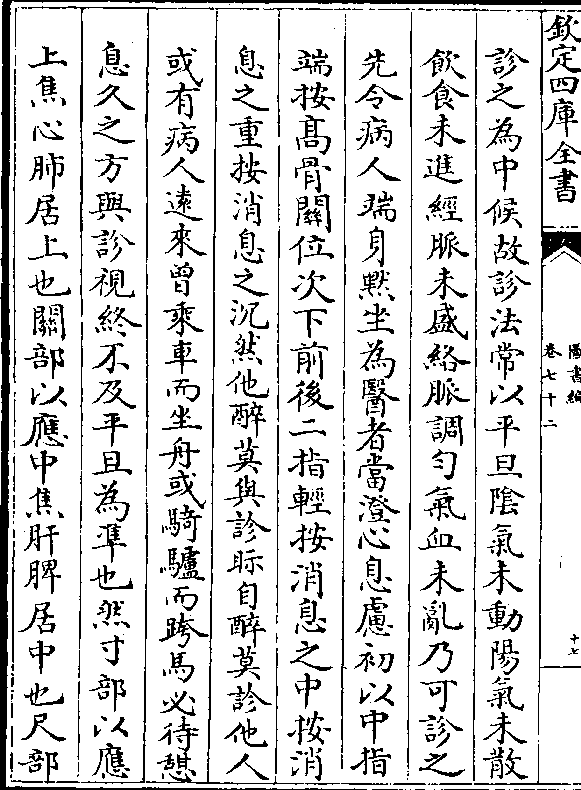 欽定四庫全書
圖書編
卷七十二
十七
診之為中候故診法常以平旦陰氣未動陽氣未散
飲食未進經脈未盛絡脈調勻氣血未亂乃可診之
先令病人端身默坐為醫者當澄心息慮初以中指
端按髙骨關位次下前後二指輕按消息之中按消
息之重按消息之沉然他醉莫與診眎自醉莫診他人
或有病人遠來曾乘車而坐舟或騎驢而跨馬必待憇
息久之方與診視終不及平旦為凖也然寸部以應
上焦心肺居上也關部以應中焦肝脾居中也尺部